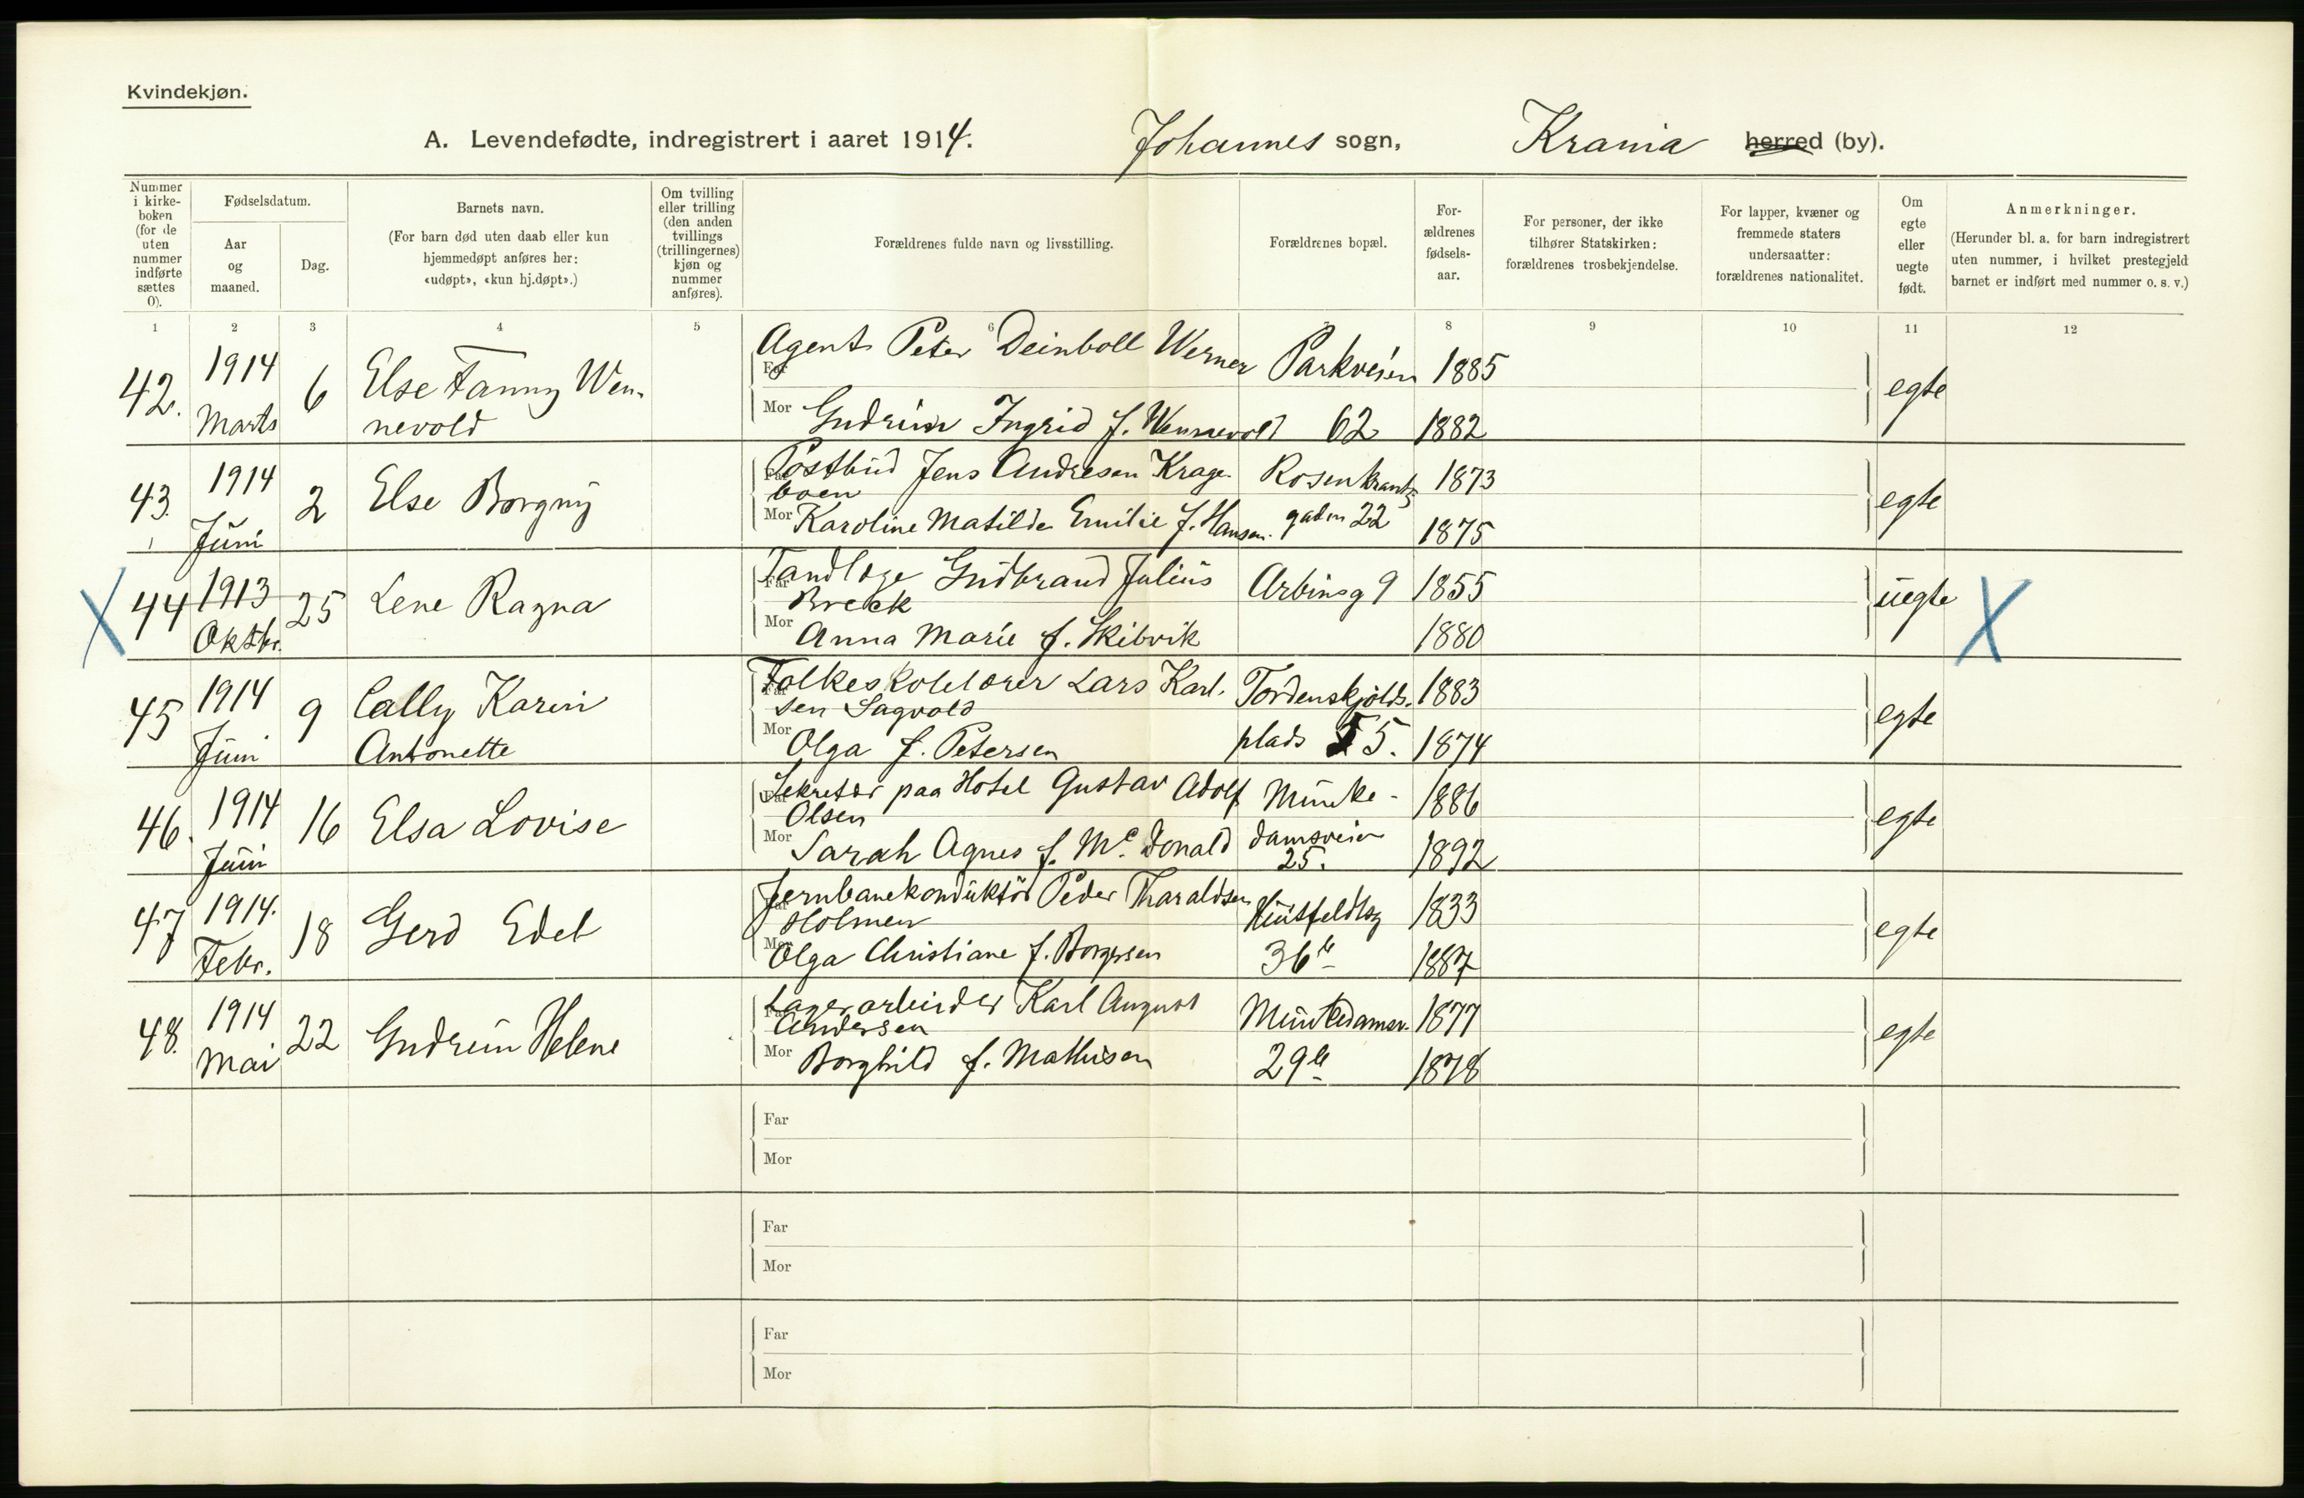 Kvindekjøn.
A. Levendefødte, indregistrert i aaret 1914. Johannes sogn, Krania herred (by).
Nummer i kirke-boken (for de uten nummer indførte sættes 0).
Fødselsdatum.
Aar og maaned.
Dag.
Barnets navn.
(For barn død uten daab eller kun hjemmedøpt anføres her: «udøpt», «kun hj.døpt».)
Om tvilling eller trilling (den anden tvillings (trillingernes) kjøn og nummer anføres).
Forældrenes fulde navn og livsstilling.
Forældrenes bopæl.
For-ældrenes fødsels-aar.
For personer, der ikke tilhører Statskirken: forældrenes trosbekjendelse.
For lapper, kvæner og fremmede staters undersaatter: forældrenes nationalitet.
Om egte eller uegte født.
Anmerkninger.
(Herunder bl. a. for barn indregistrert uten nummer, i hvilket prestegjeld barnet er indført med nummer o. s. v.)
1 2 3 4 5 6 7 8 9 10 11 12
42. 1914 Marts 6 Else Fanny Wen-
nevold
Far Agent Peter Deinboll Werner Parkveien 1885 egte
Mor Gudrun Ingrid f. Wennevold 62 1882
43. 1914 Juni 2 Else Borgny
Far Postbud Jens Andresen Krage-
boen Rosenkrantz 1873 egte
Mor Karoline Matilde Emilie f. Hansen. gaden 22 1875
X 44 1913 Oktbr. 25 Lene Ragna
Far Tandlæge Gudbrand Julius
Breck Arbinsg 9 1855 uegte X
Mor Anna Marie f. Skibvik 1880
45 1914 Juni 9 Cally Karin
Antonette
Far Folkeskolelærer Lars Karl-
sen Sagvold Tordenskjolds- 1883 egte
Mor Olga f. Petersen plads 5. 1874
46. 1914 Juni 16 Elsa Lovise
Far Sekretær paa Hotel Gustav Adolf
Olsen Munke- 1886 egte
Mor Sarah Agnes f. Mc Donald damsveien
25. 1892
47 1914. Febr. 18 Gerd Edel
Far Jernbanekonduktør Peder Tharaldsen
Holmen Huitfeldtsg 1833 egte
Mor Olga Christiane f. Borgersen 36b 1887
48. 1914 Mai 22 Gudrun Helene
Far Lagerarbeider Karl August
Andersen Munkedamsv. 1877 egte
Mor Borghild f. Mathisen 29b 1878
Far
Mor
Far
Mor
Far
Mor